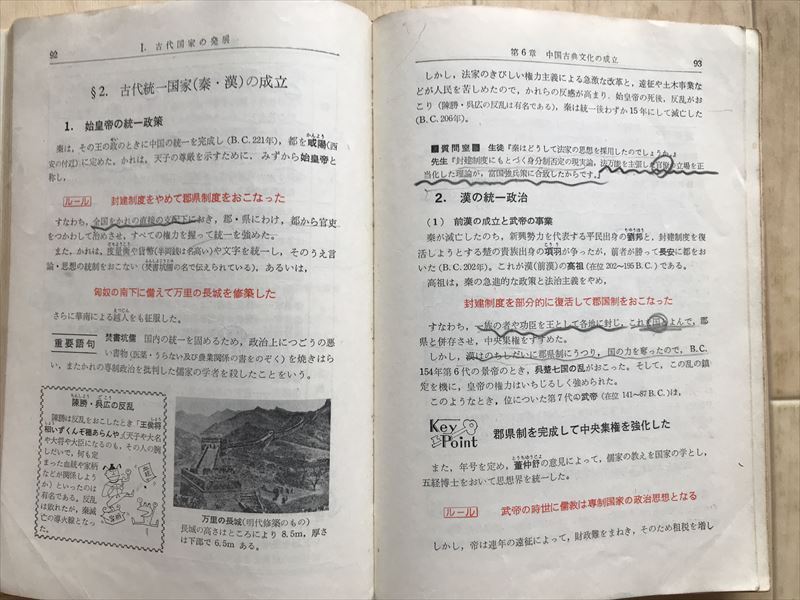 92
I. 古代国家の発展
§2. 古代統一国家(秦・漢)の成立
1. 始皇帝の統一政策
秦は,その王の政のときに中国の統一を完成し(B.C. 221年),都を咸陽(西
安の付近)に定めた。かれは,天子の尊厳を示すために,みずから始皇帝と
称し,
ルール 封建制度をやめて郡県制度をおこなった
すなわち,全国をかれの直接の支配下におき,郡・県にわけ,都から官吏
をつかわして治めさせ,すべての権力を握って統一を強めた。
また,かれは,度量衡や貨幣(半両銭は名高い)や文字を統一し,そのうえ言
論・思想の統制をおこない(焚書坑儒の名で伝えられている),あるいは,
匈奴の南下に備えて万里の長城を修築した
さらに華南による越人をも征服した。
重要語句 焚書坑儒 国内の統一を固めるため,政治上につごうの悪
い書物(医薬・うらない及び農業関係の書をのぞく)を焼きはら
い,またかれの専制政治を批判した儒家の学者を殺したことをいう。
陳勝・呉広の反乱
陳勝は反乱をおこしたとき「王侯将
相いずくんぞ種あらんや」(天子や大名
や大将や大臣になるのも,その人の腕
しだいで,何も定
まった血統や家柄
などが関係しよう
か)といったのは
有名である。反乱
は敗れたが,秦滅
亡の導火線となっ
た。
万里の長城(明代修築のもの)
長城の高さはところにより 8.5m,厚さ
は下部で 6.5m ある。
第6章 中国古典文化の成立
93
しかし,法家のきびしい権力主義による急激な改革と,遠征や土木事業な
どが人民を苦しめたので,かれらの反感が高まり,始皇帝の死後,反乱がお
こり(陳勝・呉広の反乱は有名である),秦は統一後わずか15年にして滅亡した
(B.C. 206年)。
■質問室■ 生徒『秦はどうして法家の思想を採用したのでしょうか。』
先生『封建制度にもとづく身分制否定の現実論,法万能を主張した官僚の立場を正
当化した理論が,富国強兵策に合致したからです。』
2. 漢の統一政治
(1) 前漢の成立と武帝の事業
秦が滅亡したのち,新興勢力を代表する平民出身の劉邦と,封建制度を復
活しようとする楚の貴族出身の項羽が争ったが,前者が勝って長安に都をお
いた(B.C. 202年)。これが漢(前漢)の高祖(在位 202〜195 B.C.)である。
高祖は,秦の急進的な政策と法治主義をやめ,
封建制度を部分的に復活して郡国制をおこなった
すなわち,一族の者や功臣を王として各地に封じ,これを国とよんで,郡
県と併存させ,中央集権をすすめた。
しかし,漢はのちしだいに郡県制にうつり,国の力を奪ったので,B.C.
154年第6代の景帝のとき,呉楚七国の乱がおこった。そして,この乱の鎮
定を機に,皇帝の権力はいちじるしく強められた。
このようなとき,位についた第7代の武帝(在位 141〜87 B.C.)は,
Key Point 郡県制を完成して中央集権を強化した
また,年号を定め,董仲舒の意見によって,儒家の教えを国家の学とし,
五経博士をおいて思想界を統一した。
ルール 武帝の時世に儒教は専制国家の政治思想となる
しかし,帝は連年の遠征によって,財政難をまねき,そのため租税を増し